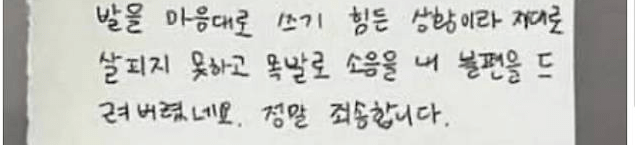 발을 마음대로 쓰기 힘든 상황이라 제대로
살피지 못하고 목발로 소음을 내 불편을 드
려버렸네요. 정말 죄송합니다.